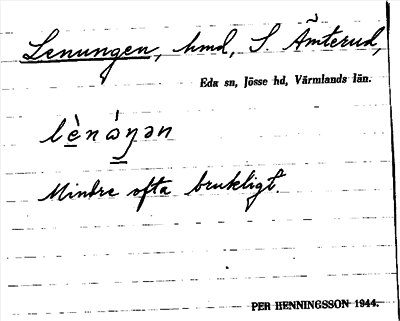 Lenungen, hmd, S. Åmterud,
Eda sn, Jösse hd, Värmlands län.
lènὼŋən
Mindre ofta brukligt.
PER HENNINGSSON 1944.